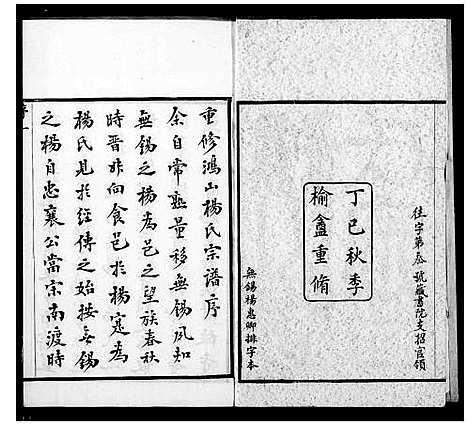 往字第叁號藏書院支招官領
丁巳秋季
榆龕重脩
無錫楊惠卿排字本
重修鴻山楊氏宗譜序
余自常熟量移無錫夙知
無錫之楊為邑之望族春秋
時晋羊舌向食邑於楊寔為
楊氏見於經傳之始按無錫
之楊自忠襄公當宗南渡時